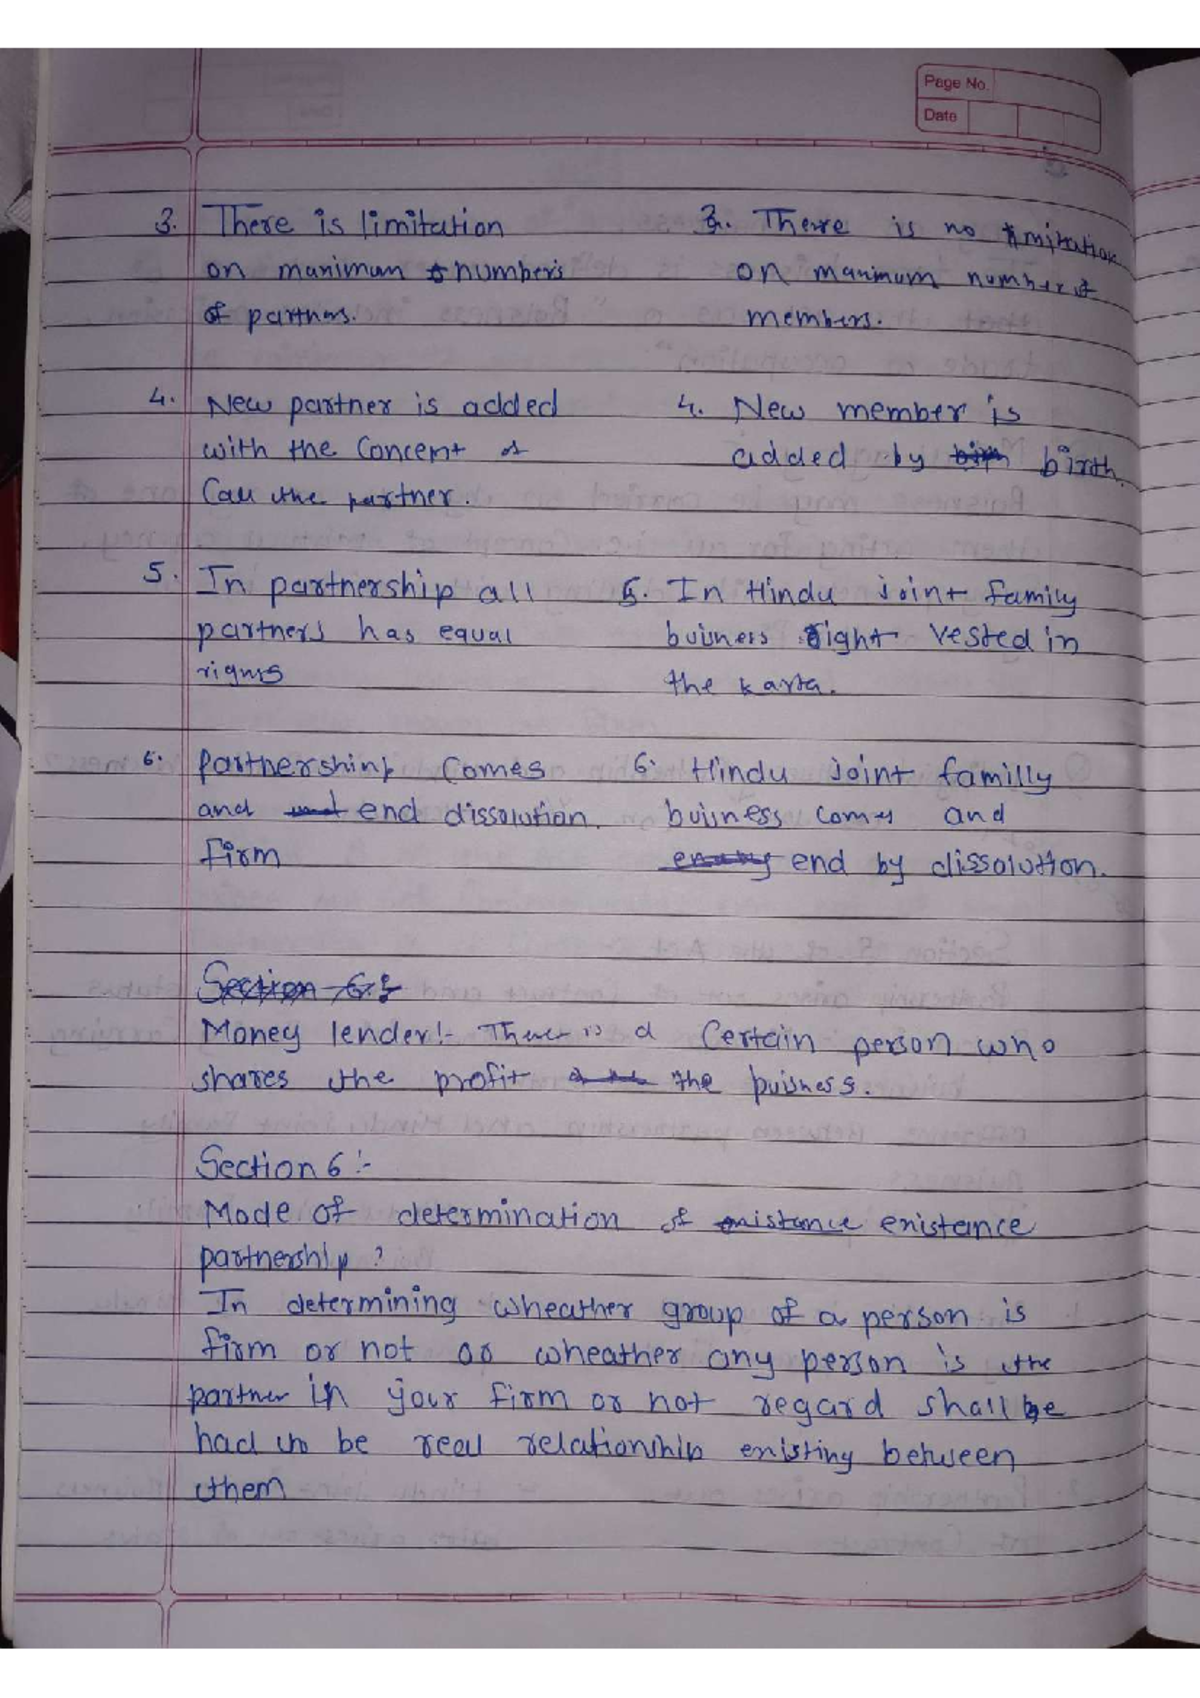 Page No.
Date
3. There is limitation
on manimum numbers
of partners.
3. There is no limitation
on manimum number of
members.
4. New partner is added
with the Concent of
Call the partner.
4. New member is
added by birth.
5. In partnership all
partners has equal
rights
5. In Hindu Joint family
buisness right vested in
the karta.
6. Partnership Comes
and end dissolution.
firm
6. Hindu Joint familly
buisness comes and
end by dissolution.
Section 6:-
Money lender:- There is a Certain person who
shares the profit the buisness.
Section 6:-
Mode of determination of enistance
partnership?
In determining wheather group of a person is
firm or not or wheather any person is the
partner in your firm or not regard shall be
had to be real relationship enisting between
them